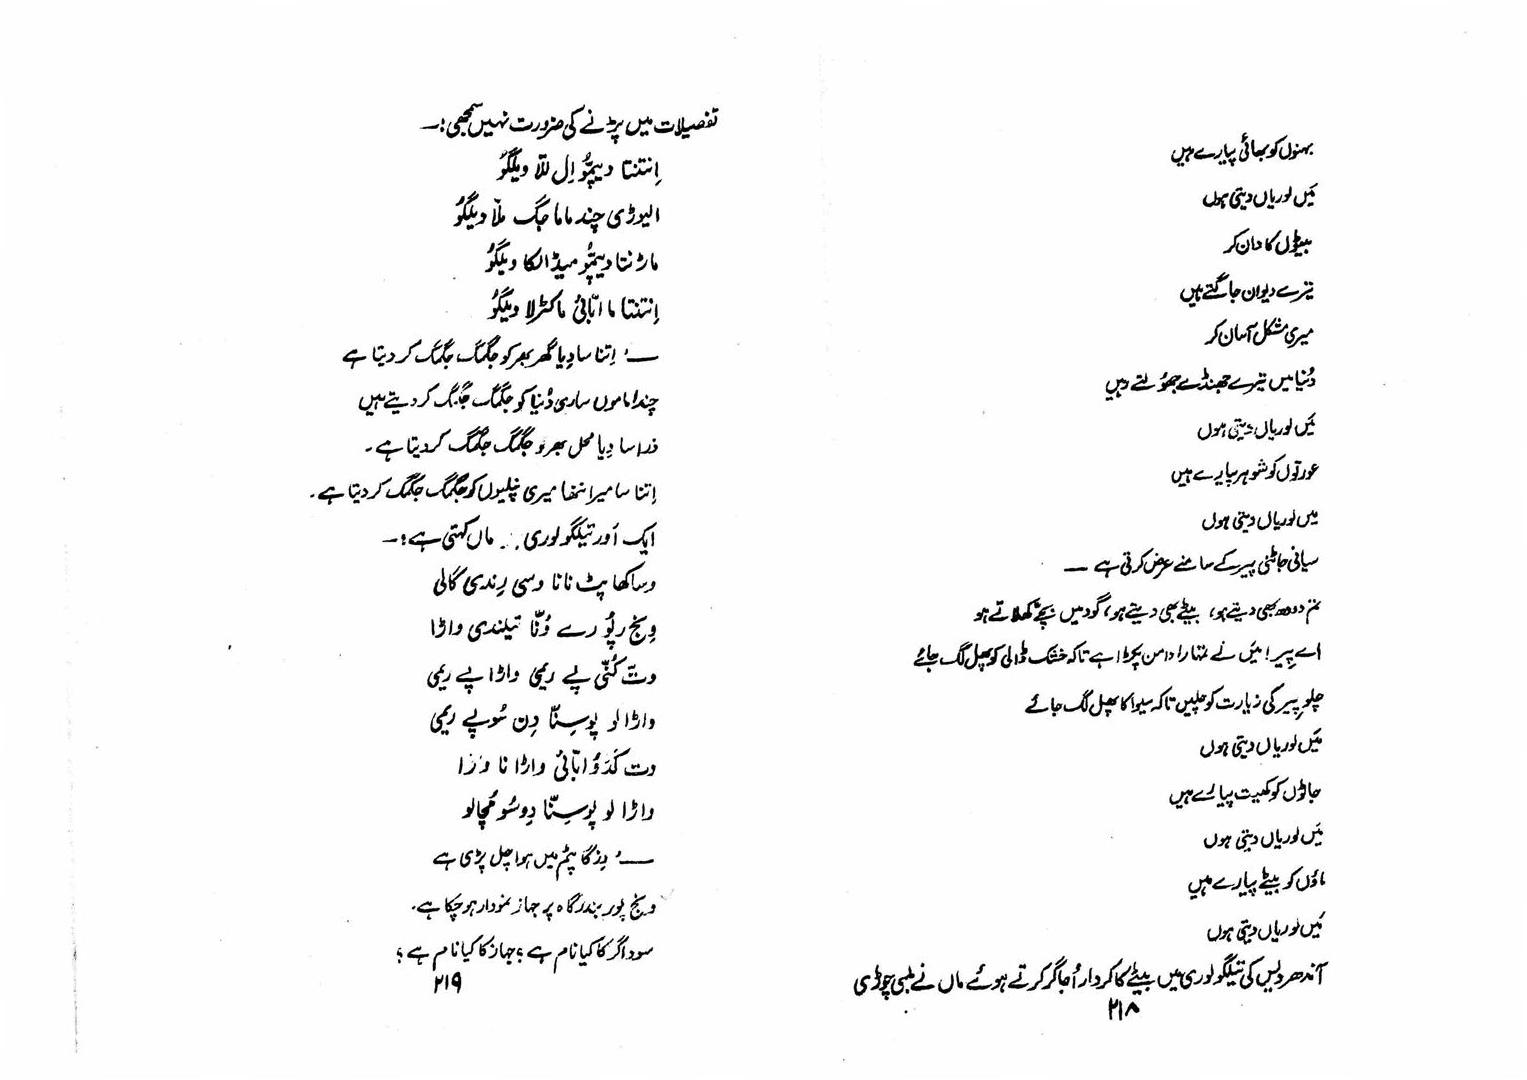 بہنوں کو بھائی پیارے ہیں
مَیں لوریاں دیتی ہوں
بیٹوں کا دان کر
تیرے دیوان جاگتے ہیں
میری مشکل آسان کر
دُنیا میں تیرے جھنڈے جھُولتے ہیں
مَیں لوریاں دیتی ہوں
عورتوں کو شوہر پیارے ہیں
میں لوریاں دیتی ہوں
سیانی جاٹنی پیر کے سامنے عرض کرتی ہے —
تم دودھ بھی دیتے ہو، بیٹے بھی دیتے ہو، گود میں بچے کھلاتے ہو
اے پیر! مَیں نے تمہارا دامن پکڑا ہے تاکہ خشک ڈالی کو پھل لگ جائے
چلو پیر کی زیارت کو چلیں تاکہ سیوا کا پھل لگ جائے
مَیں لوریاں دیتی ہوں
جاٹوں کو کھیت پیارے ہیں
مَیں لوریاں دیتی ہوں
ماؤں کو بیٹے پیارے ہیں
مَیں لوریاں دیتی ہوں
آندھر دیس کی تیلگو لوری میں بیٹے کا کردار اُجاگر کرتے ہوئے ماں نے لمبی چوڑی
۲۱۸
تفصیلات میں پڑنے کی ضرورت نہیں سمجھی:—
اِنتنتا دیپُّو اِل للّا ویلگُو
الیوڑی چندماما جگ ملّا ویلگُو
ماڑنتا دیپُّو میڈالکا ویلگُو
اِنتنتا ما ابّائی ماکنڑلا ویلگُو
—' اِتنا سا دِیا گھر بھر کو جگمگ جگمگ کر دیتا ہے
چندا ماموں ساری دُنیا کو جگمگ جگمگ کر دیتے ہیں
ذرا سا دِیا محل بھر کو جگمگ جگمگ کر دیتا ہے۔
اِتنا سا میرا ننھا میری پتلیوں کو جگمگ جگمگ کر دیتا ہے۔
ایک اَور تیلگو لوری ... ماں کہتی ہے:—
وساکھا پٹ نانا وسی رِندی گالی
وِنج رپُو رے وُنّا تیلندی واڑا
وتّ کُنّی پے ریمی واڑا پے ریمی
واڑا لو پوسِنّا دِن سُوپے ریمی
وت کدَوُ ابّائی واڑا نا ورَا
واڑا لو پوسِنّا دوسُو مُچالو
—' وِزگا پٹم میں ہوا چل پڑی ہے
ونج پور بندرگاہ پر جہاز نمودار ہو چکا ہے۔
سوداگر کا کیا نام ہے؟ جہاز کا کیا نام ہے؟
۲۱۹